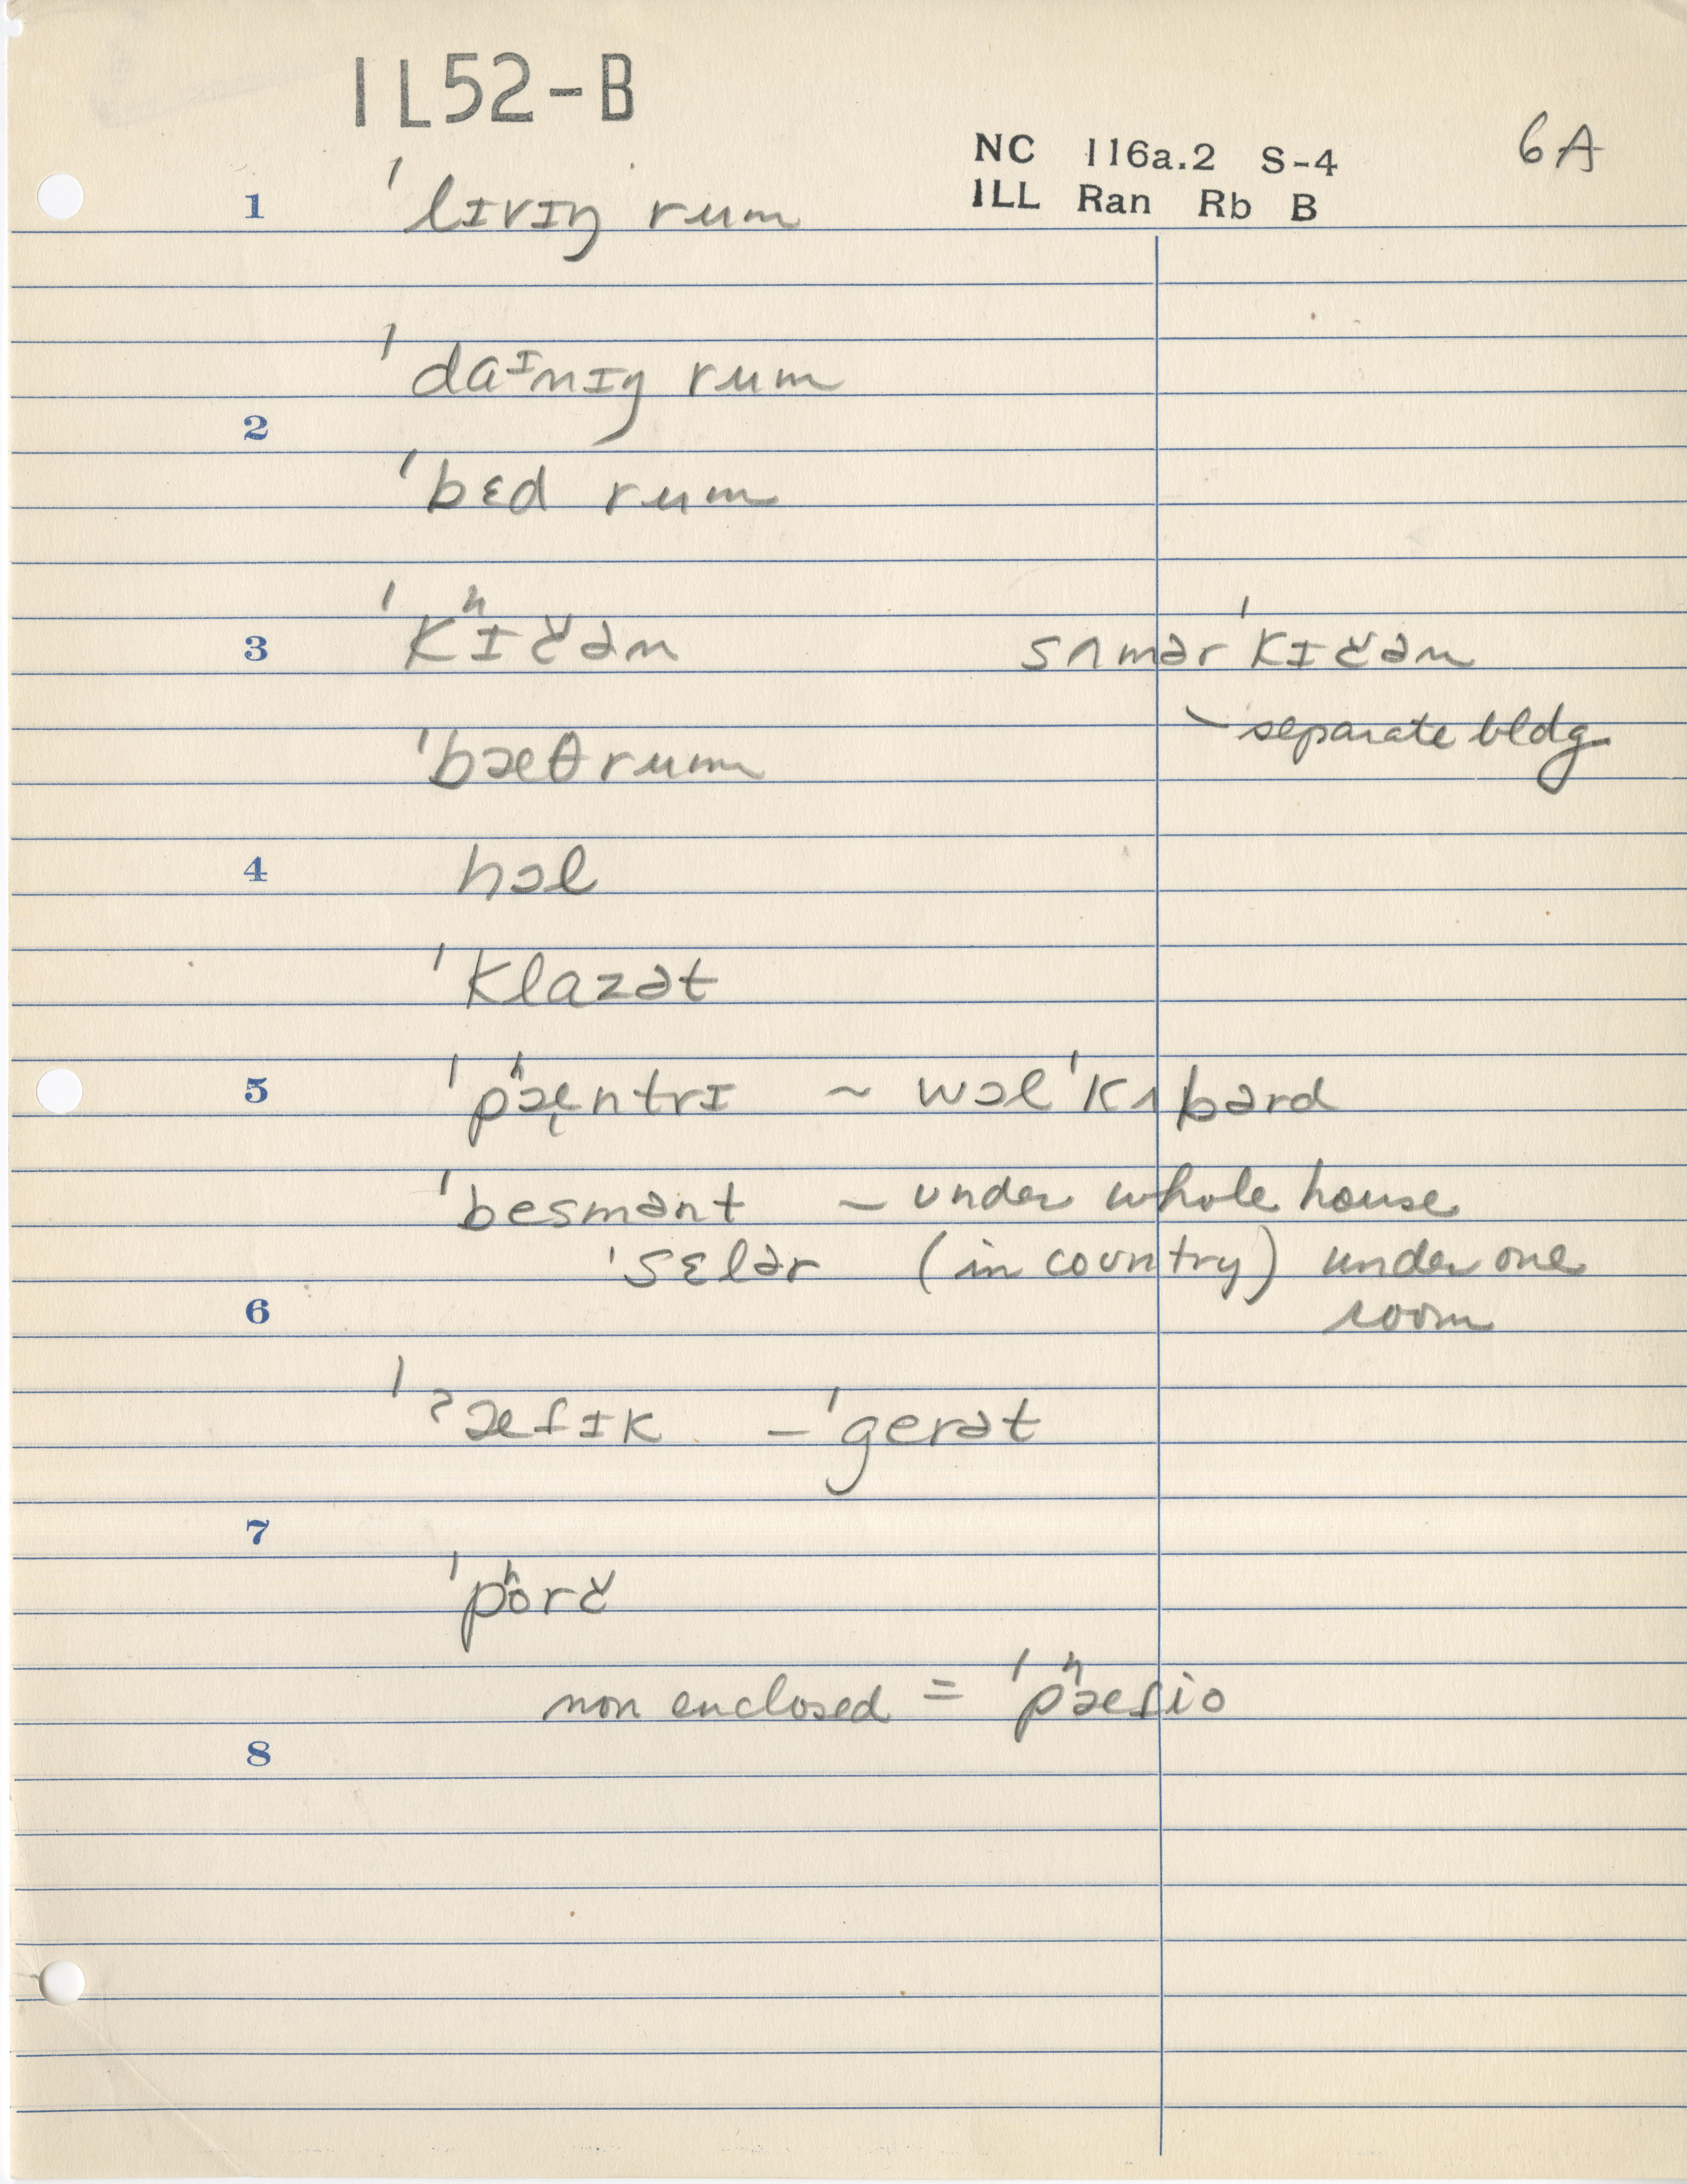 IL52-B
NC 116a.2 S-4 6A
ILL Ran Rb B
1 ˈlɪvɪŋ rum
ˈdaᶦnɪŋ rum
2
ˈbɛd rum
3 ˈkʰɪčən sʌmərˈkɪčən
- separate bldg
ˈbæθrum
4 hɔl
ˈklazət
5 ˈpʰæ̨ntrɪ ~ wɔlˈkʌbərd
ˈbesmənt – under whole house
ˈsɛlər (in country) under one
6 room
ˈˀæɾɪk – ˈgerət
7
ˈpʰorč
non enclosed = ˈpʰæɾio
8